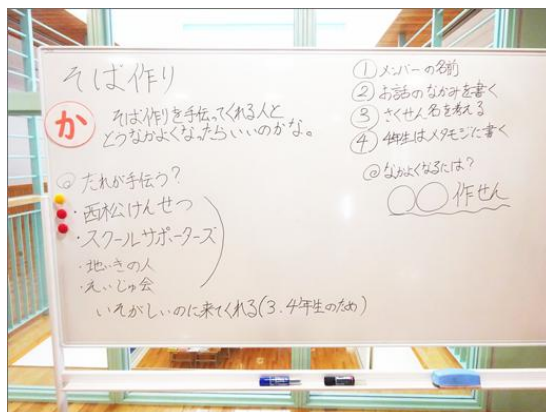 そば作り
か
そば作りを手伝ってくれる人と
どうなかよくなったらいいのかな。
◎だれが手伝う？
・西松けんせつ
・スクールサポーターズ
・地いきの人
・えいじゅ会
いそがしいのに来てくれる(3.4年生のため)
①メンバーの名前
②お話のなかみを書く
③さくせん名を考える
④4年生はメタモジに書く
◎なかよくなるには？
○○作せん